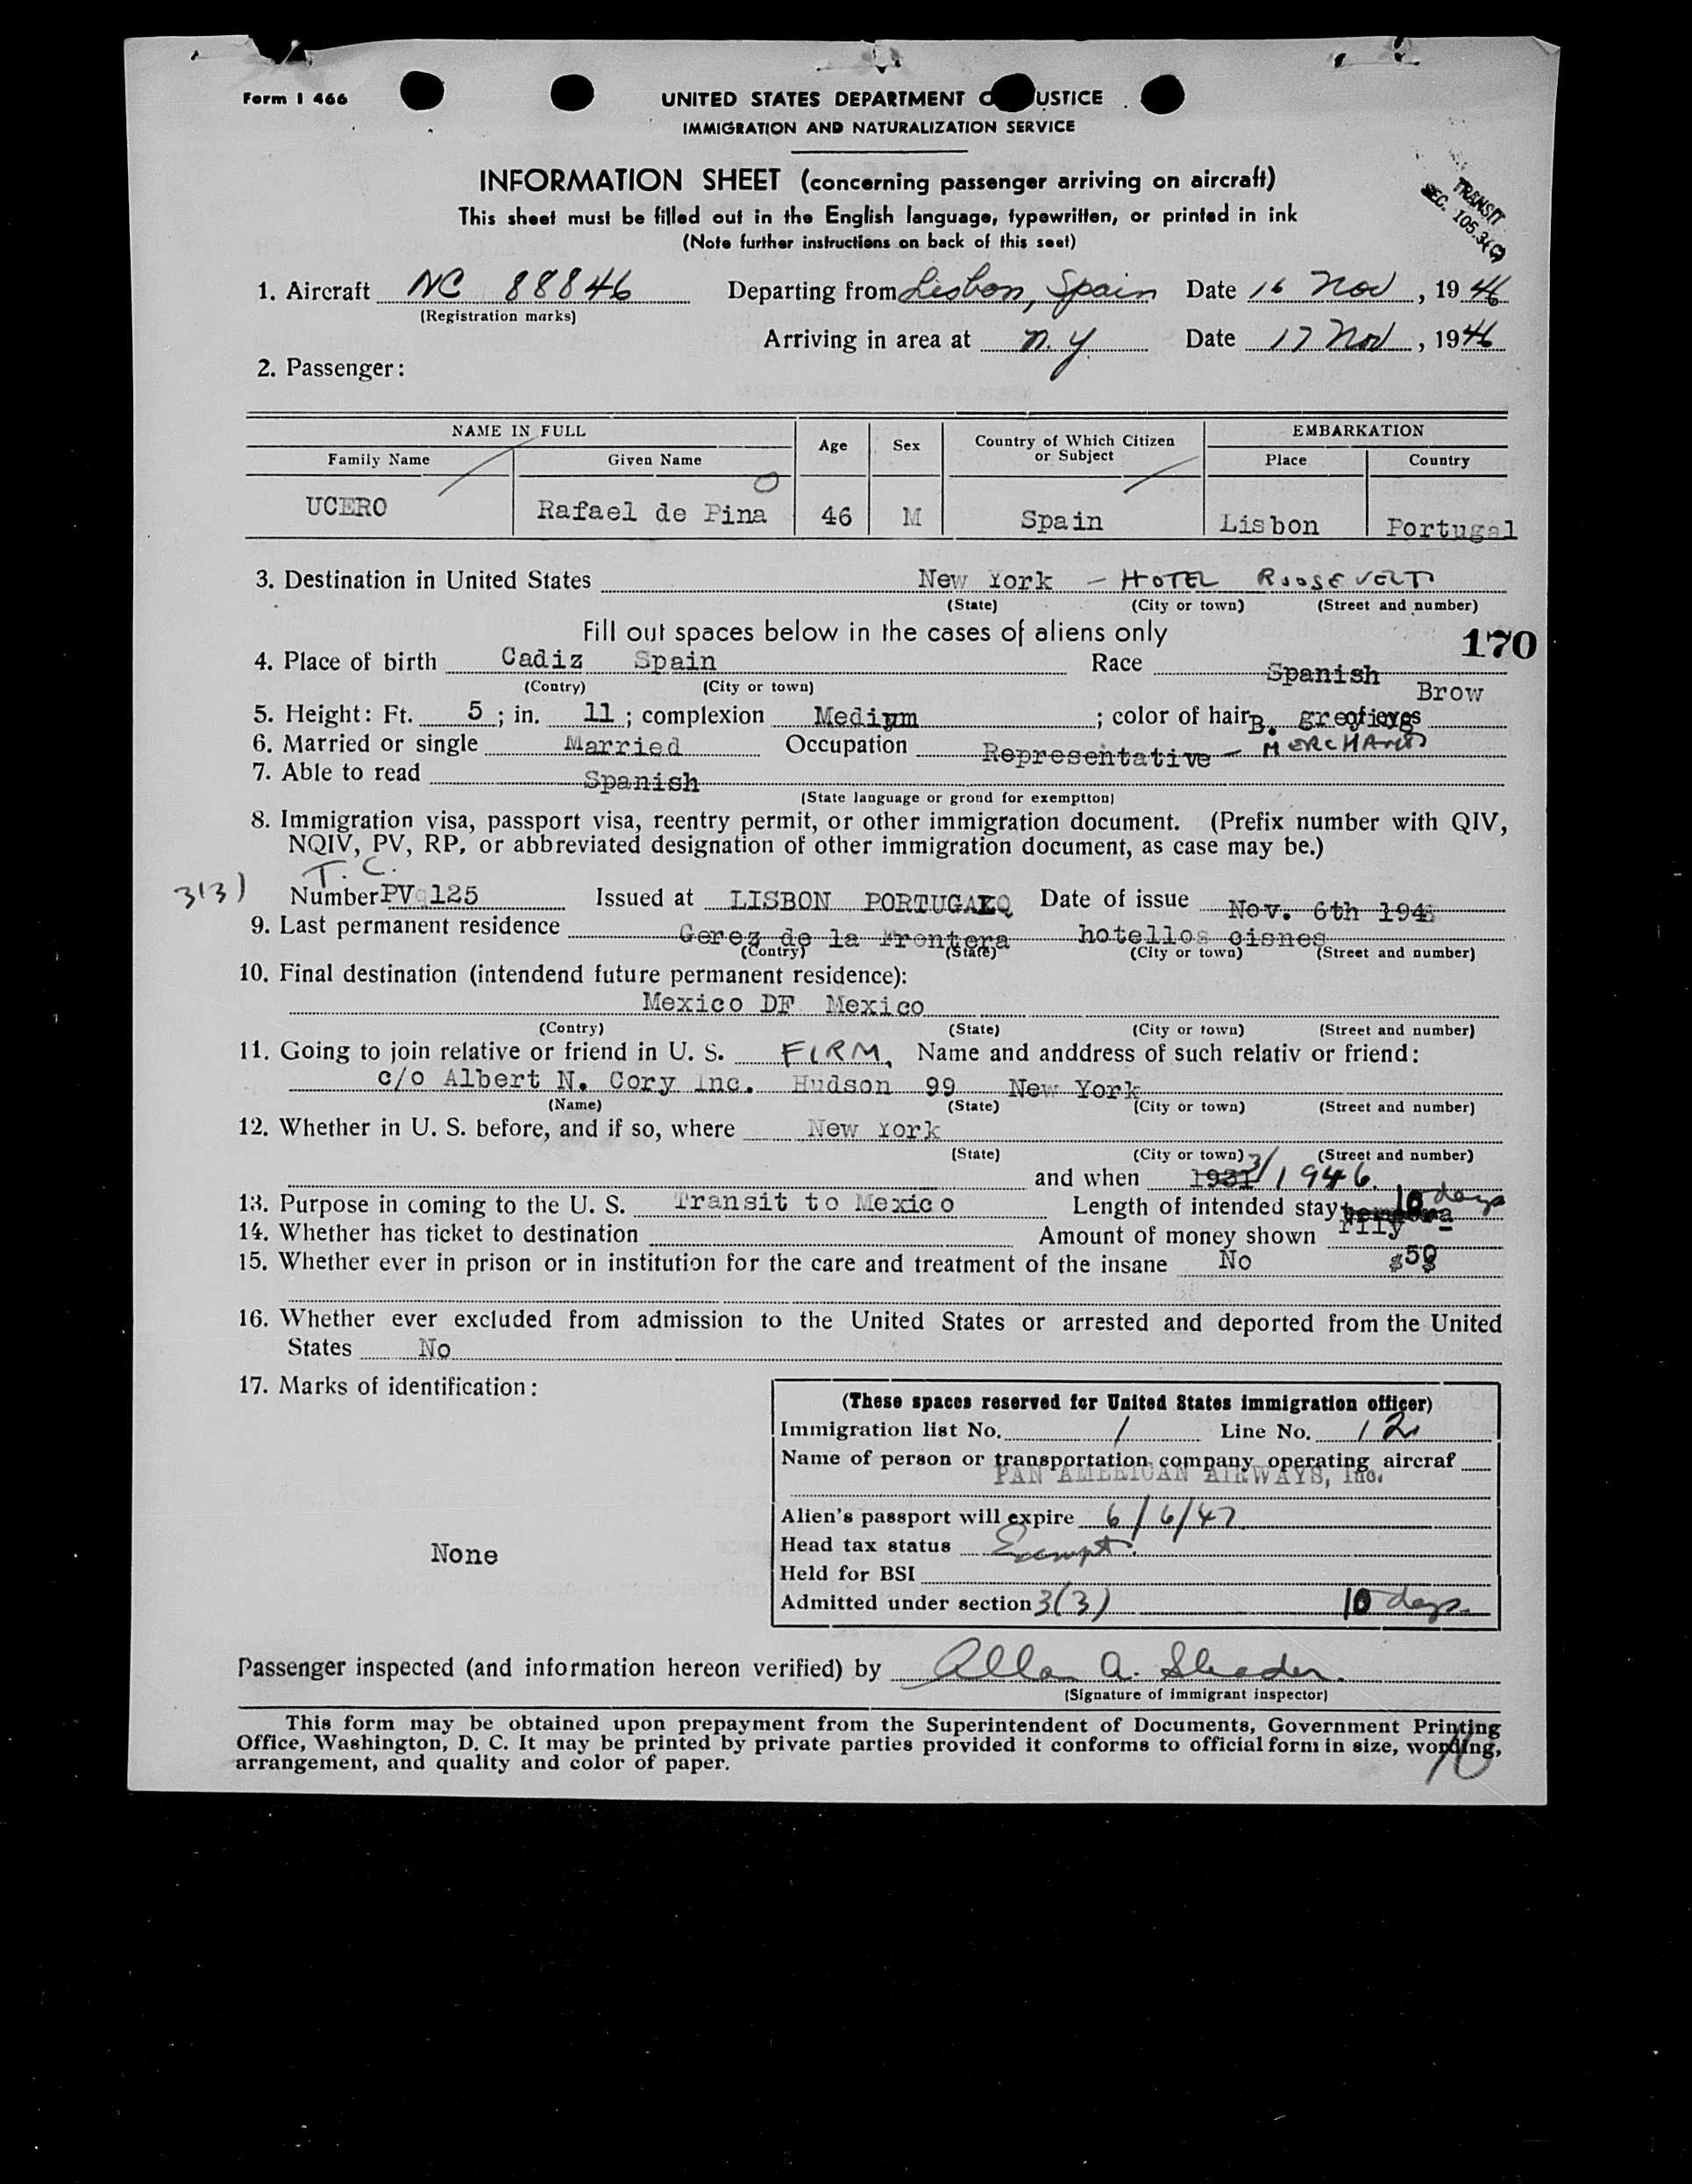 Form I 466
UNITED STATES DEPARTMENT O USTICE
IMMIGRATION AND NATURALIZATION SERVICE
INFORMATION SHEET (concerning passenger arriving on aircraft)
This sheet must be filled out in the English language, typewritten, or printed in ink
(Note further instructions on back of this seet)
TRANSIT
SEC. 105.3(C)
1. Aircraft NC 88846 Departing from Lisbon, Spain Date 16 Nov, 1946
(Registration marks)
Arriving in area at N. Y. Date 17 Nov, 1946
2. Passenger:
NAME IN FULL Age Sex Country of Which Citizen or Subject EMBARKATION
Family Name Given Name Place Country
UCERO Rafael de Pina 46 M Spain Lisbon Portugal
3. Destination in United States New York - HOTEL ROOSEVELT
(State) (City or town) (Street and number)
Fill out spaces below in the cases of aliens only
170
4. Place of birth Cadiz Spain Race Spanish
(Contry) (City or town)
Brow
5. Height: Ft. 5 ; in. 11 ; complexion Medium ; color of hair B. grey of eyes
6. Married or single Married Occupation Representative - MERCHANT
7. Able to read Spanish
(State language or grond for exemptton)
8. Immigration visa, passport visa, reentry permit, or other immigration document. (Prefix number with QIV,
NQIV, PV, RP, or abbreviated designation of other immigration document, as case may be.)
T. C.
3(3) Number PV 125 Issued at LISBON PORTUGAL Date of issue Nov. 6th 194
9. Last permanent residence Gerez de la Frontera hotellos cisnes
(Contry) (State) (City or town) (Street and number)
10. Final destination (intendend future permanent residence):
Mexico DF Mexico
(Contry) (State) (City or town) (Street and number)
11. Going to join relative or friend in U. S. FIRM. Name and anddress of such relativ or friend:
c/o Albert N. Cory Inc. Hudson 99 New York
(Name) (State) (City or town) (Street and number)
12. Whether in U. S. before, and if so, where New York
(State) (City or town) (Street and number)
and when 1931 3/1946.
13. Purpose in coming to the U. S. Transit to Mexico Length of intended stay 10 days
14. Whether has ticket to destination Amount of money shown
15. Whether ever in prison or in institution for the care and treatment of the insane No
16. Whether ever excluded from admission to the United States or arrested and deported from the United
States No
17. Marks of identification:
None
(These spaces reserved for United States immigration officer)
Immigration list No. 1 Line No. 12
Name of person or transportation company operating aircraf
PAN AMERICAN AIRWAYS, Inc.
Alien's passport will expire 6/6/47
Head tax status Exempt.
Held for BSI
Admitted under section 3(3) 10 days.
Passenger inspected (and information hereon verified) by Allan A.
(Signature of immigrant inspector)
This form may be obtained upon prepayment from the Superintendent of Documents, Government Printing
Office, Washington, D. C. It may be printed by private parties provided it conforms to official form in size, wording,
arrangement, and quality and color of paper.